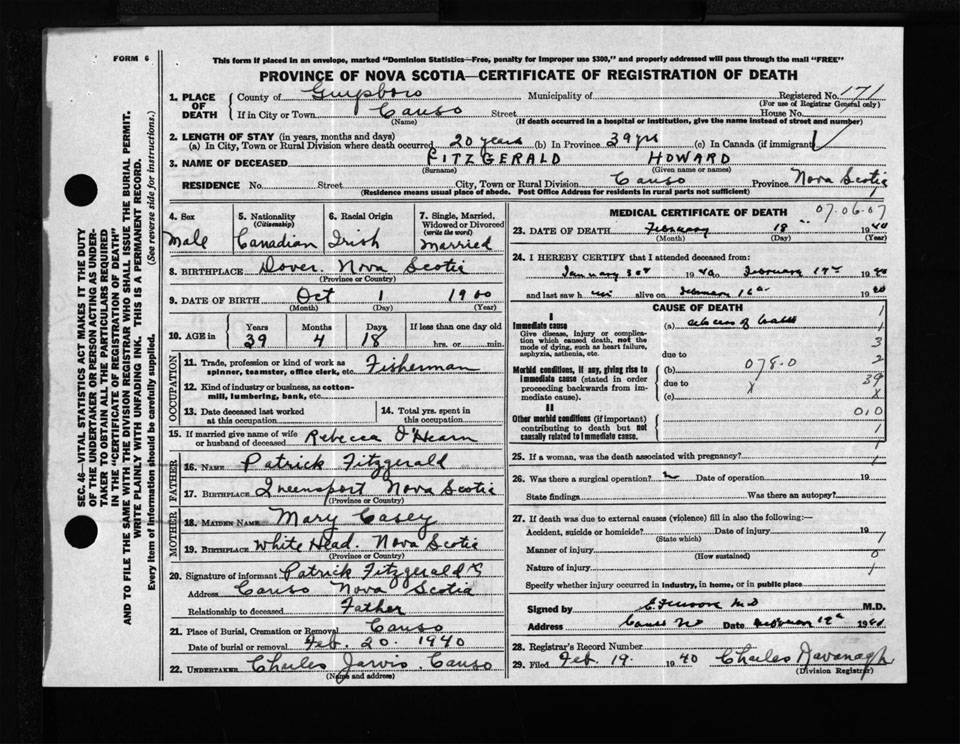 FORM 6
This form if placed in an envelope, marked "Dominion Statistics—Free, penalty for improper use $300," and properly addressed will pass through the mail "FREE"
PROVINCE OF NOVA SCOTIA—CERTIFICATE OF REGISTRATION OF DEATH
SEC. 46—VITAL STATISTICS ACT MAKES IT THE DUTY
OF THE UNDERTAKER OR PERSON ACTING AS UNDER-
TAKER TO OBTAIN ALL THE PARTICULARS REQUIRED
IN THE "CERTIFICATE OF REGISTRATION OF DEATH"
AND TO FILE THE SAME WITH THE DIVISION REGISTRAR WHO SHALL ISSUE THE BURIAL PERMIT.
WRITE PLAINLY WITH UNFADING INK. THIS IS A PERMANENT RECORD.
Every item of information should be carefully supplied. (See reverse side for instructions.)
1. PLACE OF DEATH County of Guysboro Municipality of Registered No. 171
(For use of Registrar General only)
If in City or Town Canso Street House No.
(Name) (If death occurred in a hospital or institution, give the name instead of street and number)
2. LENGTH OF STAY (in years, months and days)
(a) In City, Town or Rural Division where death occurred 20 years (b) In Province 39 yrs (c) In Canada (if immigrant)
3. NAME OF DECEASED FITZGERALD HOWARD
(Surname) (Given name or names)
RESIDENCE No. Street City, Town or Rural Division Canso Province Nova Scotia
(Residence means usual place of abode. Post Office Address for residents in rural parts not sufficient) 1
4. Sex 5. Nationality (Citizenship) 6. Racial Origin 7. Single, Married, Widowed or Divorced (write the word)
Male Canadian Irish Married
8. BIRTHPLACE Dover. Nova Scotia
(Province or Country)
9. DATE OF BIRTH Oct 1 1900
(Month) (Day) (Year)
10. AGE in Years Months Days If less than one day old
39 4 18 hrs. or min.
OCCUPATION
11. Trade, profession or kind of work as spinner, teamster, office clerk, etc. Fisherman
12. Kind of industry or business, as cotton-mill, lumbering, bank, etc.
13. Date deceased last worked at this occupation 14. Total yrs. spent in this occupation
15. If married give name of wife or husband of deceased Rebecca O'Hearn
FATHER
16. NAME Patrick Fitzgerald
17. BIRTHPLACE Queensport Nova Scotia
(Province or Country)
MOTHER
18. MAIDEN NAME Mary Casey
19. BIRTHPLACE White Head. Nova Scotia
(Province or Country)
20. Signature of informant Patrick Fitzgerald
Address Canso Nova Scotia
Relationship to deceased Father
21. Place of Burial, Cremation or Removal Canso
Date of burial or removal Feb. 20. 1940
22. UNDERTAKER Charles Jarvis. Canso
(Name and address)
MEDICAL CERTIFICATE OF DEATH 07.06.07
23. DATE OF DEATH February 18 1940
(Month) (Day) (Year)
24. I HEREBY CERTIFY that I attended deceased from:
January 30th 1940 to February 19th 1940
and last saw h im alive on February 16th 1940
CAUSE OF DEATH 1
I
Immediate cause (a) 1
Give disease, injury or complication which caused death, not the mode of dying, such as heart failure, asphyxia, asthenia, etc. due to 3
Morbid conditions, if any, giving rise to immediate cause (stated in order proceeding backwards from immediate cause). (b) 078.0 2
due to x 39
(c) x
II 010
Other morbid conditions (if important) contributing to death but not causally related to immediate cause. 1
25. If a woman, was the death associated with pregnancy? 1
26. Was there a surgical operation? Date of operation 19
State findings Was there an autopsy?
27. If death was due to external causes (violence) fill in also the following:—
Accident, suicide or homicide? Date of injury 19
(State which) 1
Manner of injury 0
(How sustained)
Nature of injury 1
Specify whether injury occurred in industry, in home, or in public place
Signed by M.D.
Address Canso NS Date February 19th 1940
28. Registrar's Record Number
29. Filed Feb. 19. 1940 Charles Kavanagh
(Division Registrar)